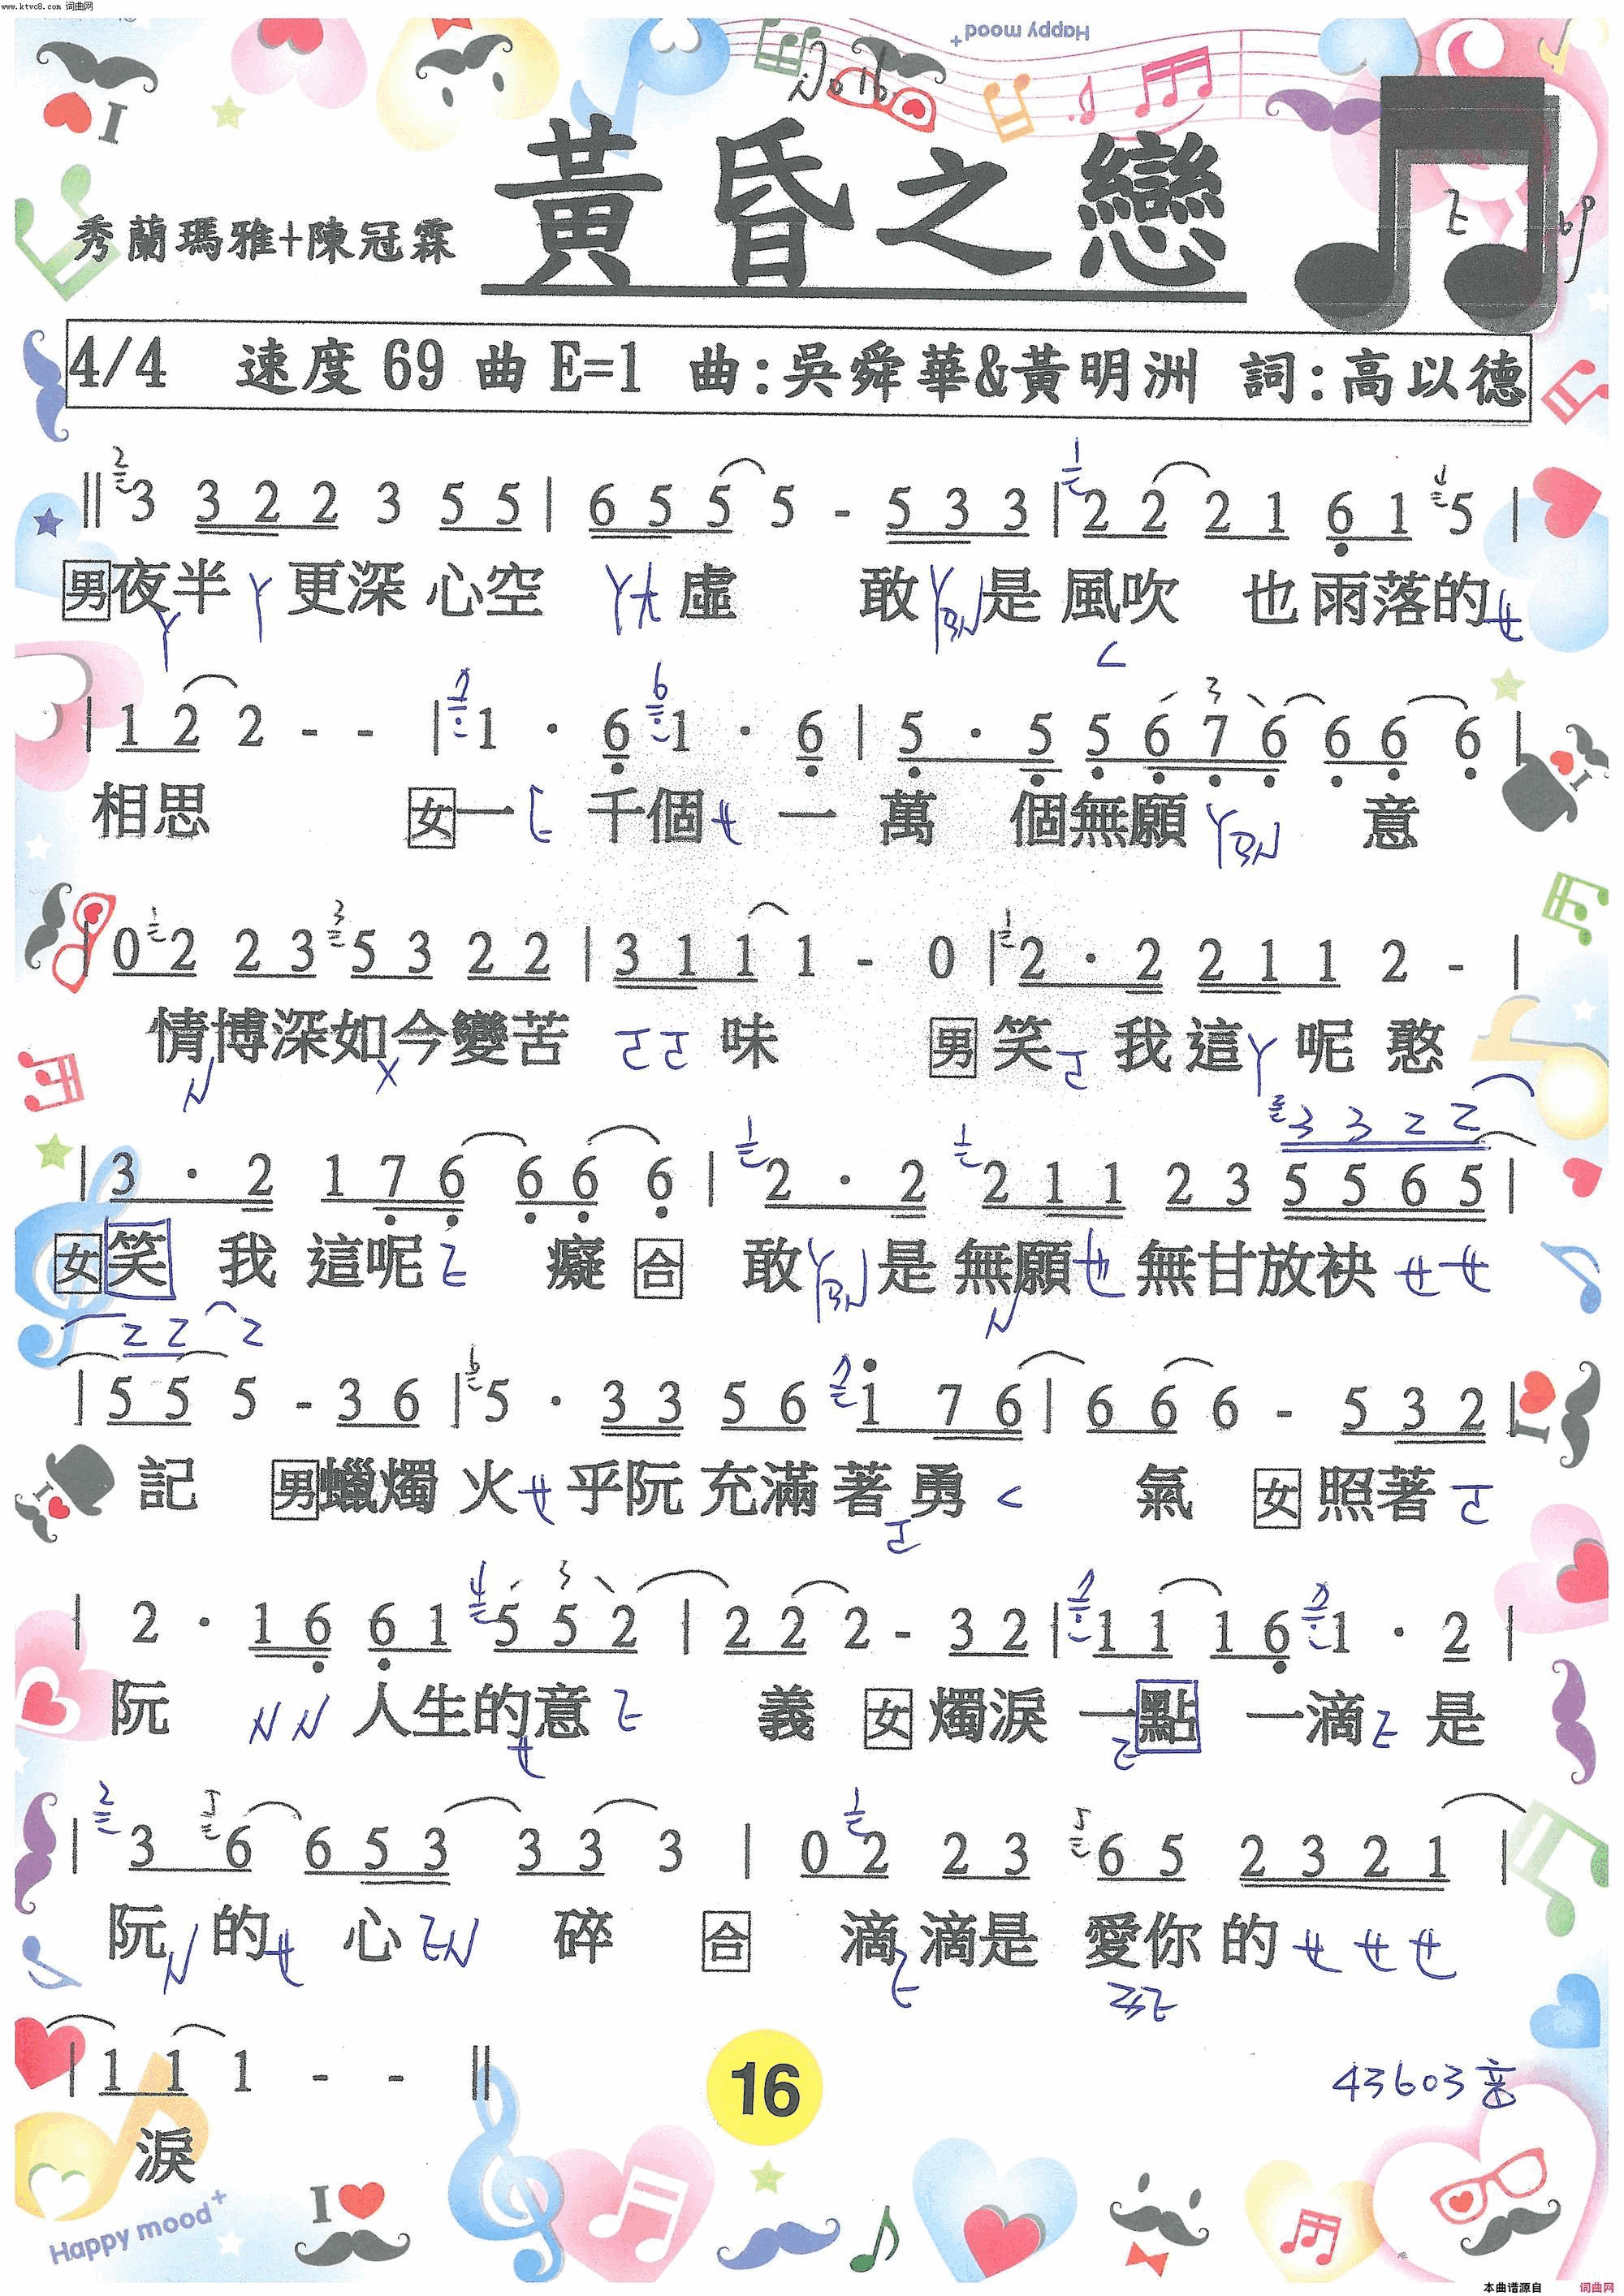 www.ktvc8.com 词曲网
Happy mood+
No 16
黃昏之戀
秀蘭瑪雅+陳冠霖
4/4 速度 69 曲 E=1 曲:吳舜華&黃明洲 詞:高以德
‖ 3 3 2 2 3 5 5 | 6 5 5 5 - 5 3 3 | 2 2 2 1 6 1 5 |
男 夜半 ㄚ 更深 心空 ㄚㄊ 虛 敢 是 風吹 也 雨落的 ㄝ
| 1 2 2 - - | 1 · 6 1 · 6 | 5 · 5 5 6 7 6 6 6 6 |
相思 女 一 ㄛ 千個 ㄝ 一 萬 個無願 意
| 0 2 2 3 5 3 2 2 | 3 1 1 1 - 0 | 2 · 2 2 1 1 2 - |
情博深如今變苦 ㄛㄛ 味 男 笑 我這 ㄚ 呢 憨
3 3 2 2
| 3 · 2 1 7 6 6 6 6 | 2 · 2 2 1 1 2 3 5 5 6 5 |
女 笑 我 這呢 癡 合 敢 是 無願 ㄝ 無甘放袂 ㄝ ㄝ
2 2 2
| 5 5 5 - 3 6 | 5 · 3 3 5 6 1 7 6 | 6 6 6 - 5 3 2 |
記 男 蠟燭 火 ㄝ 乎阮 充滿 著 勇 ㄑ 氣 女 照著 ㄛ
| 2 · 1 6 6 1 5 5 2 | 2 2 2 - 3 2 | 1 1 1 6 1 · 2 |
阮 人生的意 義 女 燭淚 一點 一滴 是
| 3 6 6 5 3 3 3 3 | 0 2 2 3 6 5 2 3 2 1 |
阮 的 ㄝ 心 碎 合 滴 滴是 愛你 的 ㄝ ㄝ ㄝ
| 1 1 1 - - ‖
淚
16
43603
I
Happy mood+
本曲谱源自 词曲网